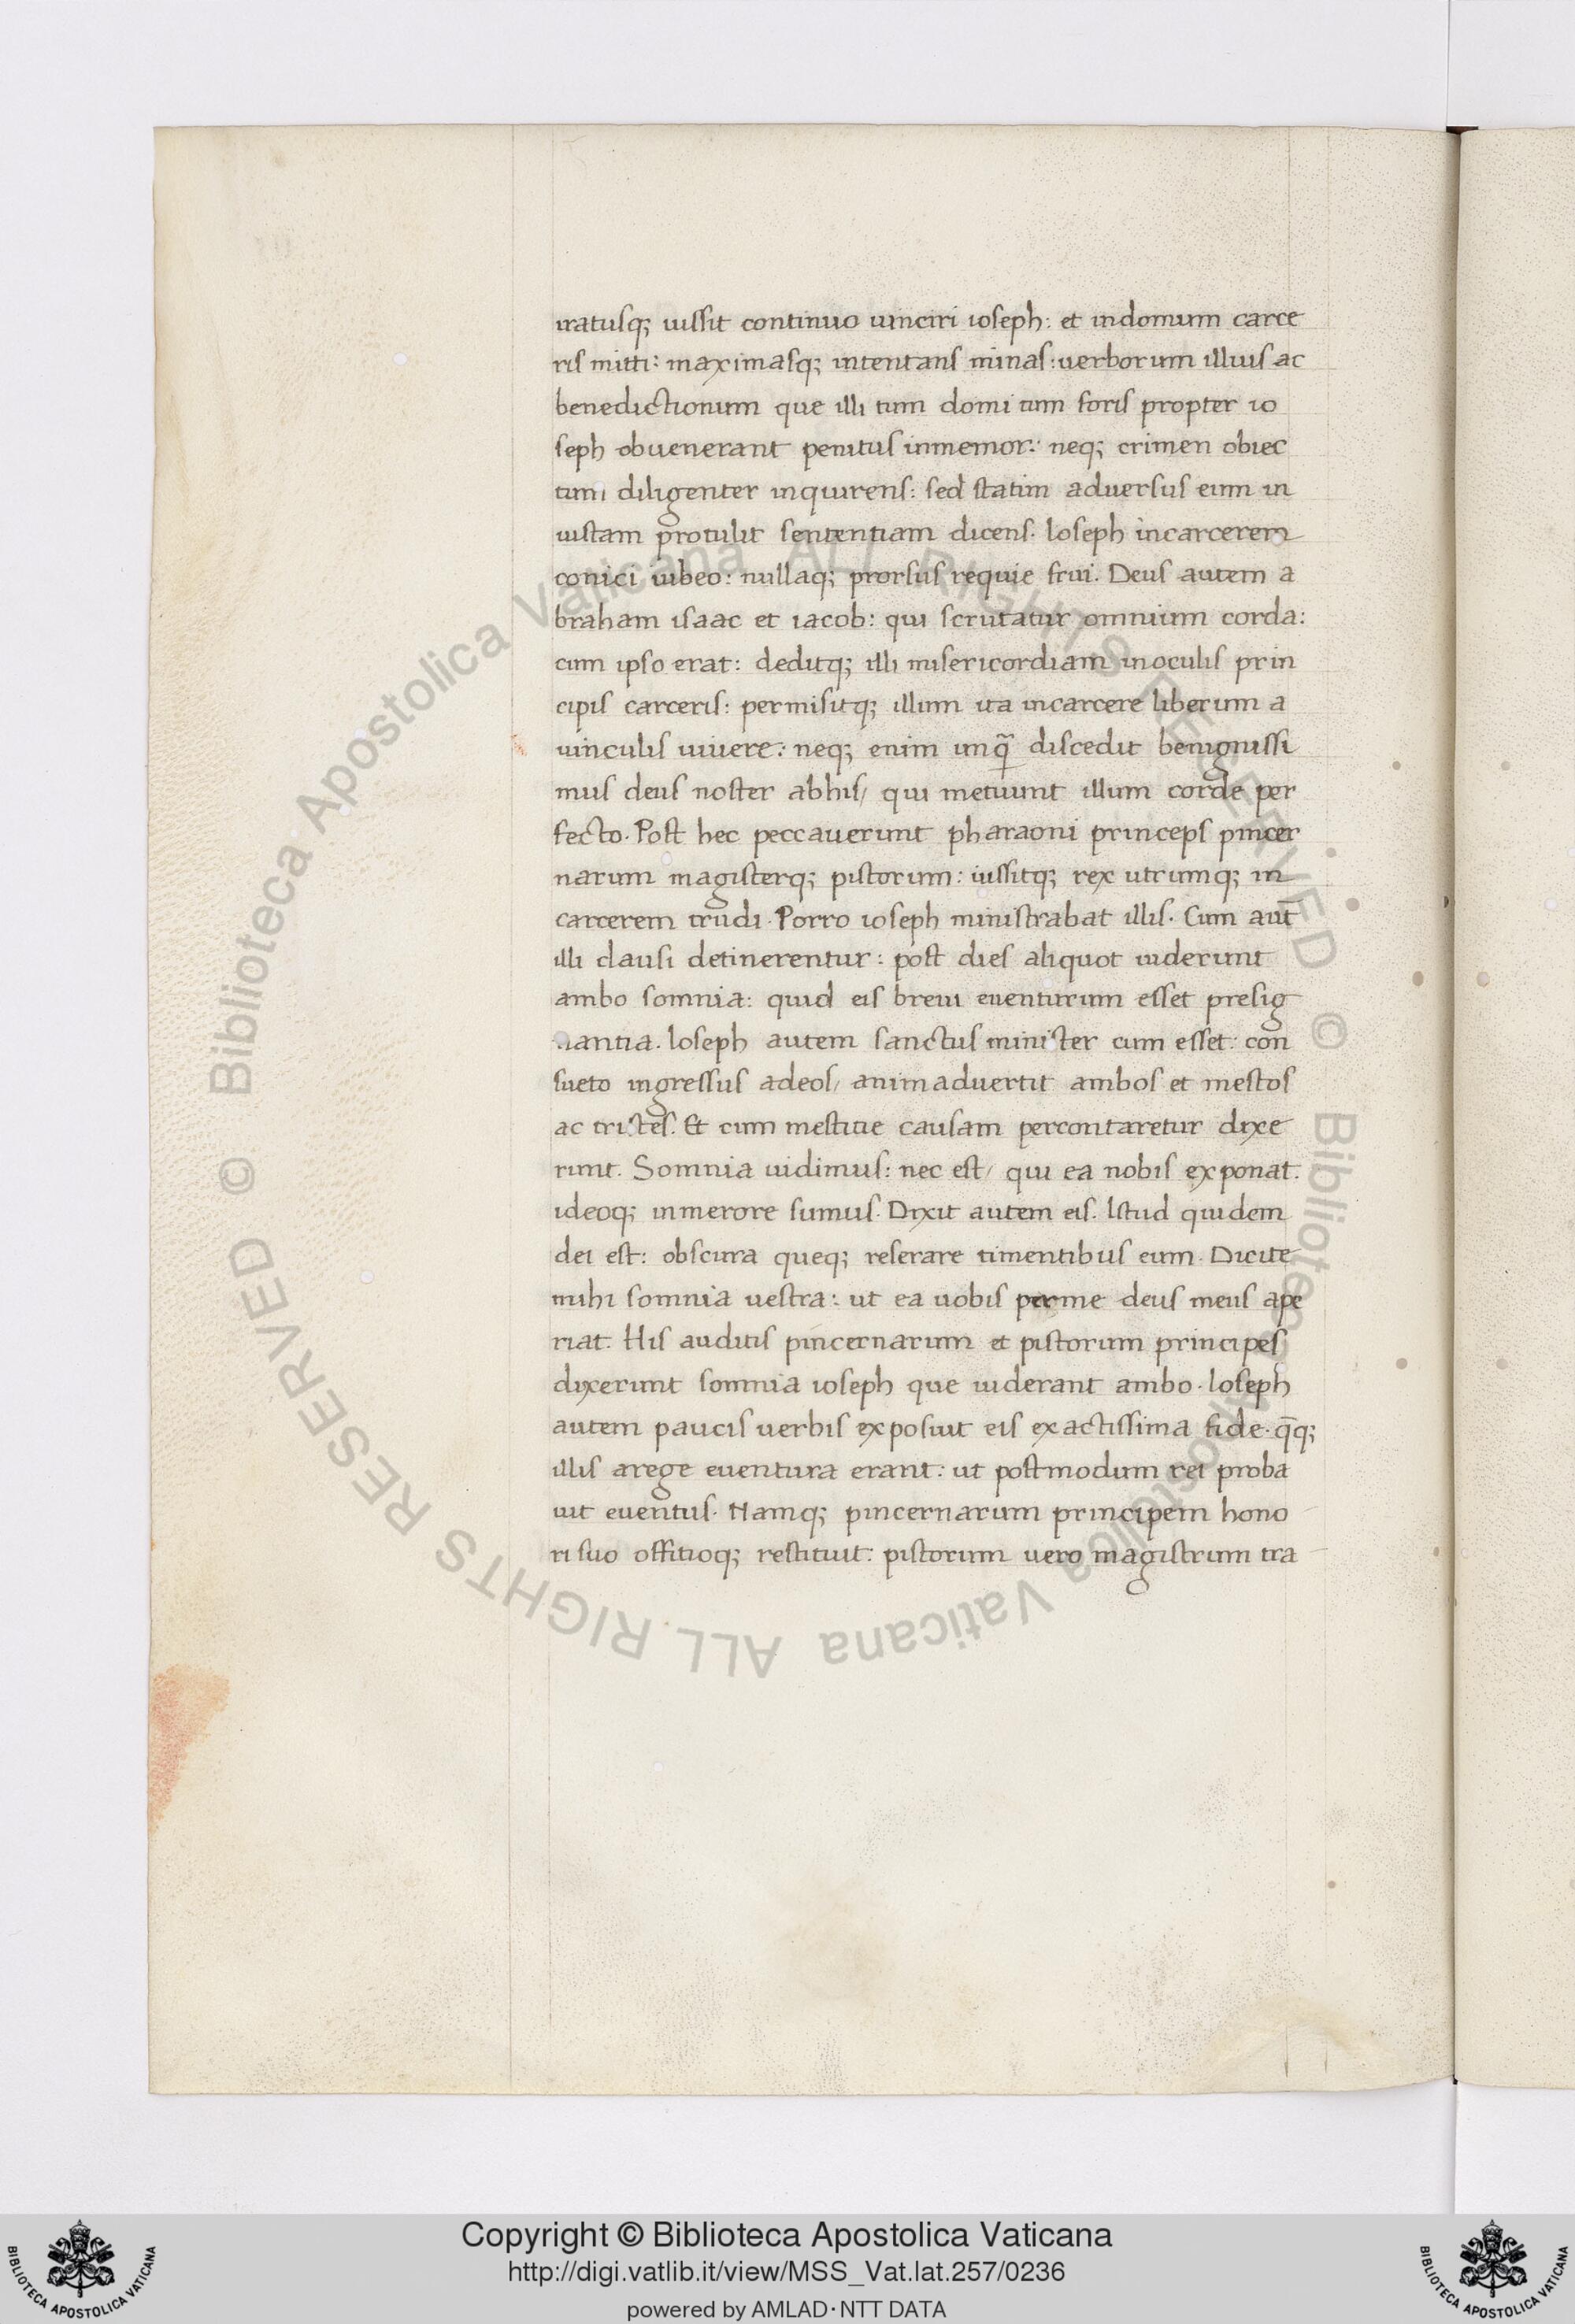 iratusq; iussit continuo uinciri ioseph: et indomum carce
ris mitti: maximasq; intentans minas: uerborum illius ac
benedictionum que illi tum domi tum foris propter io
seph obuenerant penitus inmemor: neq; crimen obiec
tum diligenter inquirens: sed statim aduersus eum in
iustam protulit sententiam dicens. Ioseph incarcerem
conici iubeo: nullaq; prorsus requie frui. Deus autem a
braham isaac et iacob: qui scrutatur omnium corda:
cum ipso erat: deditq; illi misericordiam inoculis prin
cipis carceris: permisitq; illum ita incarcere liberum a
uinculis uiuere: neq; enim unq̃ discedit benignissi
mus deus noster abhis/ qui metuunt illum corde per
fecto. Post hec peccauerunt pharaoni princeps pincer
narum magisterq; pistorum: iussitq; rex utrumq; in
carcerem trudi. Porro ioseph ministrabat illis. Cum aut̄
illi clausi detinerentur: post dies aliquot uiderunt
ambo somnia: quid eis breui euenturum esset presig
nantia. Ioseph autem sanctus minister cum esset: con
sueto ingressus adeos/ animaduertit ambos et mestos
ac tristes. Et cum mestitie causam percontaretur dixe
runt. Somnia uidimus: nec est/ qui ea nobis exponat.
ideoq; inmerore sumus. Dixit autem eis. Istud quidem
dei est: obscura queq; reserare timentibus eum. Dicite
mihi somnia uestra: ut ea uobis perme deus meus ape
riat. His auditis pincernarum et pistorum principes
dixerunt somnia ioseph que uiderant ambo. Ioseph
autem paucis uerbis exposuit eis exactissima fide. q̄q;
illis arege euentura erant: ut postmodum rei proba
uit euentus. Namq; pincernarum principem hono
ri suo offitioq; restituit: pistorum uero magistrum tra
© Biblioteca Apostolica Vaticana ALL RIGHTS RESERVED © Biblioteca Apostolica Vaticana ALL RIGHTS RESERVED
BIBLIOTECA APOSTOLICA VATICANA
Copyright © Biblioteca Apostolica Vaticana
http://digi.vatlib.it/view/MSS_Vat.lat.257/0236
powered by AMLAD·NTT DATA
BIBLIOTECA APOSTOLICA VATICANA